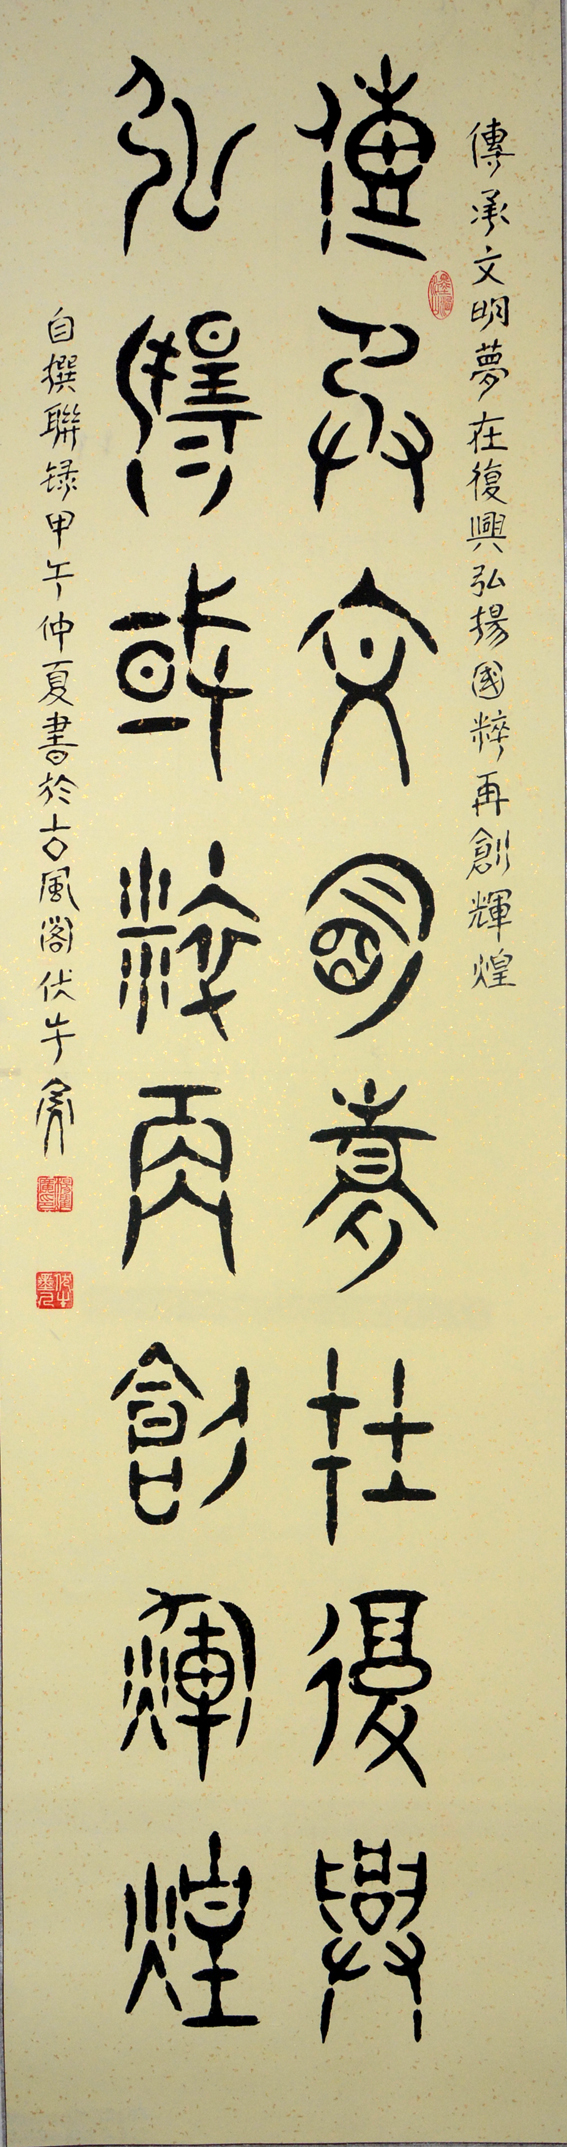 傳承文明夢在復興弘揚國粹再創輝煌
傳承文明夢在復興
弘揚國粹再創輝煌
自撰聯錄甲午仲夏書於古風閣伏牛